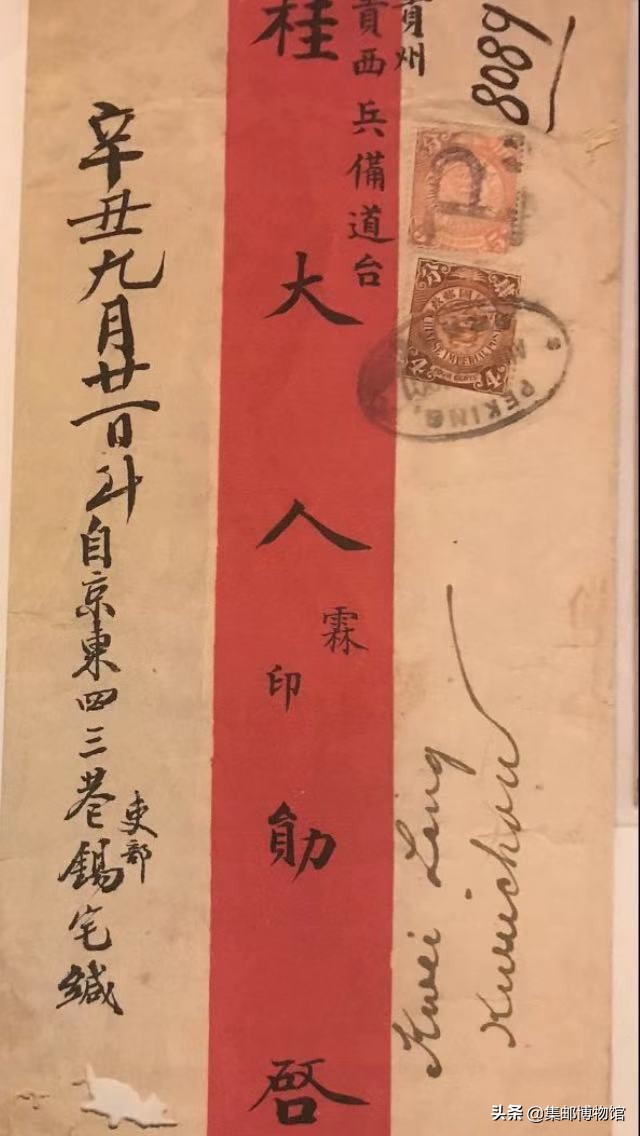 8089
貴州
貴西兵備道台
桂大人霖印勛啓
辛丑九月廿一日自京東四三巷吏部錫宅緘
Kwei Ling
Kweichou
CHINESE IMPERIAL POST
FOUR CENTS
4 4
PEKING
头条 @集邮博物馆